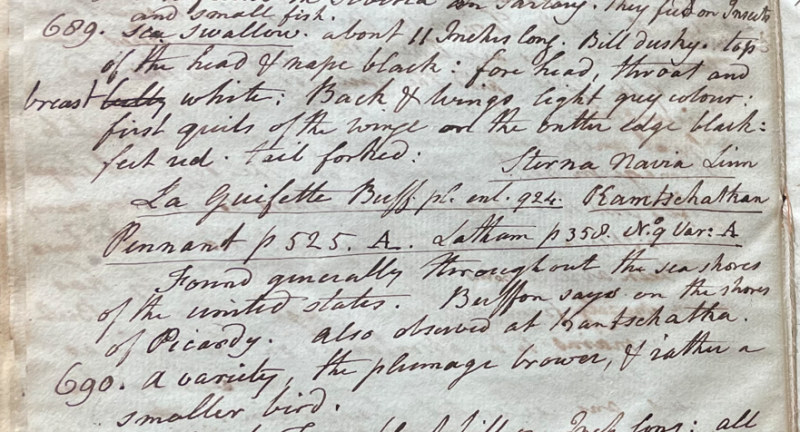 on Tartary. They feed on Insects
and small fish.
689. sea swallow. about 11 Inches long. Bill dusky. top
of the head & nape black: fore head, throat and
breast belly white: Back & wings light grey colour:
first quils of the wings on the outter edge black:
feet red. tail forked: Sterna Navia Linn
La Guifette Buff. pl. enl. 924. Kamtschatkan
Pennant p 525. A. Latham p 358. N.9 Var: A
Found generally throughout the sea shores
of the united states. Buffon says on the shores
of Picardy. also observed at Kamtschatka.
690. a variety, the plumage brower, & rather a
smaller bird.
Inch long: all